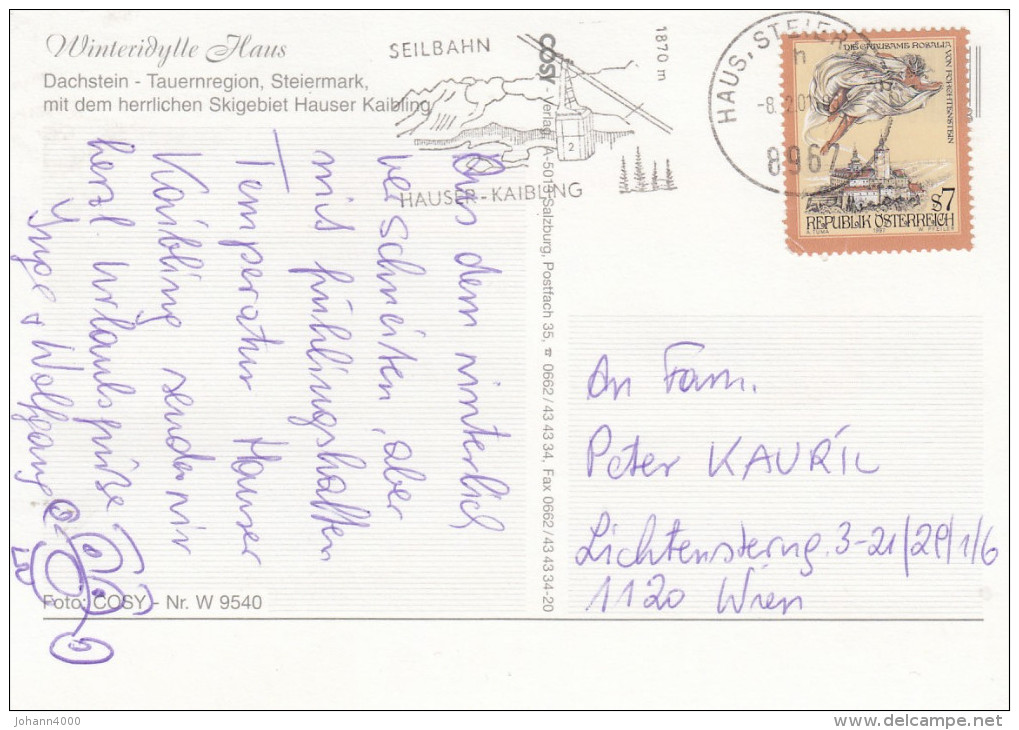 Winteridylle Haus
Dachstein - Tauernregion, Steiermark,
mit dem herrlichen Skigebiet Hauser Kaibling
SEILBAHN
1870 m
2
HAUSER-KAIBLING
HAUS, STEIERM
8967
DIE GRAUSAME ROSALIA
VON FORCHTENSTEIN
S7
REPUBLIK ÖSTERREICH
A. TUMA 1997 W. PFEILER
COSY - Verlag, A-5013 Salzburg, Postfach 35, ☎ 0662/43 43 34, Fax 0662/43 43 34-20
Aus dem winterlich
verschneiten, aber
mit frühlingshaften
Temperatur Hauser
Kaibling senden wir
herzl. Urlaubsgrüße
Inge + Wolfgang
An Fam.
Peter KAURIL
Lichtensterng. 3-21/29/1/6
1120 Wien
Foto: COSY - Nr. W 9540
Johann4000
www.delcampe.net